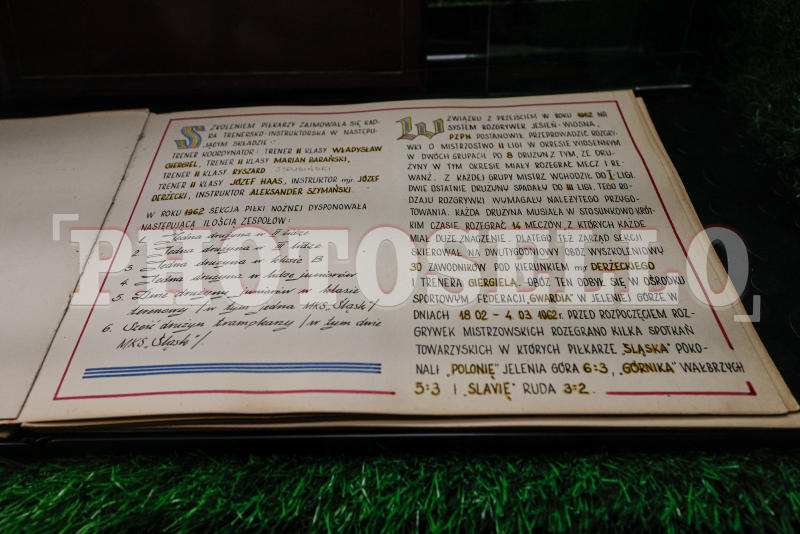 SZKOLENIEM PIŁKARZY ZAJMOWAŁA SIĘ KAD-
RA TRENERSKO-INSTRUKTORSKA W NASTĘPU-
JĄCYM SKŁADZIE:
TRENER KOORDYNATOR: TRENER II KLASY WŁADYSŁAW
GIERGIEL, TRENER II KLASY MARIAN BARAŃSKI,
TRENER II KLASY RYSZARD
TRENER II KLASY JÓZEF HAAS, INSTRUKTOR mjr JÓZEF
DERŻECKI, INSTRUKTOR ALEKSANDER SZYMAŃSKI.
W ROKU 1962 SEKCJA PIŁKI NOŻNEJ DYSPONOWAŁA
NASTĘPUJĄCĄ ILOŚCIĄ ZESPOŁÓW:
1. Jedna drużyna w II lidze
2. Jedna drużyna w III lidze
3. Jedna drużyna w klasie B
4. Jedna drużyna w lidze juniorów
5. Dwie drużyny juniorów w klasie
terenowej /w tym jedna MKS „Śląsk"/
6. Sześć drużyn trampkarzy /w tym dwie
MKS „Śląsk"/.
W ZWIĄZKU Z PRZEJŚCIEM W ROKU 1962 NA
SYSTEM ROZGRYWEK JESIEŃ-WIOSNA,
PZPN POSTANOWIŁ PRZEPROWADZIĆ ROZGRY-
WKI O MISTRZOSTWO II LIGI W OKRESIE WIOSENNYM
W DWÓCH GRUPACH PO 8 DRUŻYN Z TYM, ŻE DRU-
ŻYNY W TYM OKRESIE MIAŁY ROZEGRAĆ MECZ I RE-
WANŻ. Z KAŻDEJ GRUPY MISTRZ WCHODZIŁ DO I LIGI.
DWIE OSTATNIE DRUŻYNY SPADAŁY DO III LIGI. TEGO RO-
DZAJU ROZGRYWKI WYMAGAŁY NALEŻYTEGO PRZYGO-
TOWANIA. KAŻDA DRUŻYNA MUSIAŁA W STOSUNKOWO KRÓT-
KIM CZASIE ROZEGRAĆ 14 MECZÓW, Z KTÓRYCH KAŻDE
MIAŁ DUŻE ZNACZENIE. DLATEGO TEŻ ZARZĄD SEKCJI
SKIEROWAŁ NA DWUTYGODNIOWY OBÓZ WYSZKOLENIOWY
30 ZAWODNIKÓW POD KIERUNKIEM mjr DERŻECKIEGO
I TRENERA GIERGIELA. OBÓZ TEN ODBYŁ SIĘ W OŚRODKU
SPORTOWYM FEDERACJI „GWARDIA" W JELENIEJ GÓRZE W
DNIACH 18.02 - 4.03.1962r. PRZED ROZPOCZĘCIEM ROZ-
GRYWEK MISTRZOWSKICH ROZEGRANO KILKA SPOTKAŃ
TOWARZYSKICH W KTÓRYCH PIŁKARZE „ŚLĄSKA" POKO-
NALI „POLONIĘ" JELENIA GÓRA 6:3, „GÓRNIKA" WAŁBRZYCH
5:3 I „SLAVIĘ" RUDA 3:2.